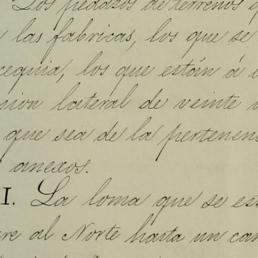 Los pedazos de terrenos q
las fabricas, los que se
cequia, los que están á
sion lateral de veinte
que sea de la pertenen
anexos.
I. La loma que se es
re al Norte hasta un ca